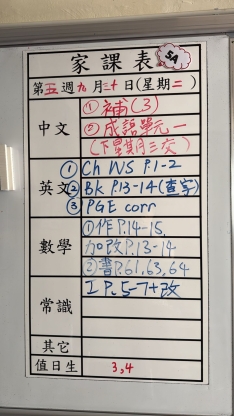 家課表
5A
第五週九月三十日(星期二)
中文
①補(3)
②成語單元一
(下星期三交)
英文
①Ch WS P.1-2
②BK P.13-14(查字)
③PGE corr
數學
①作P.14-15,
加改P.13-14
②書P.61,63,64
常識
工P.5-7+改
其它
值日生
3,4